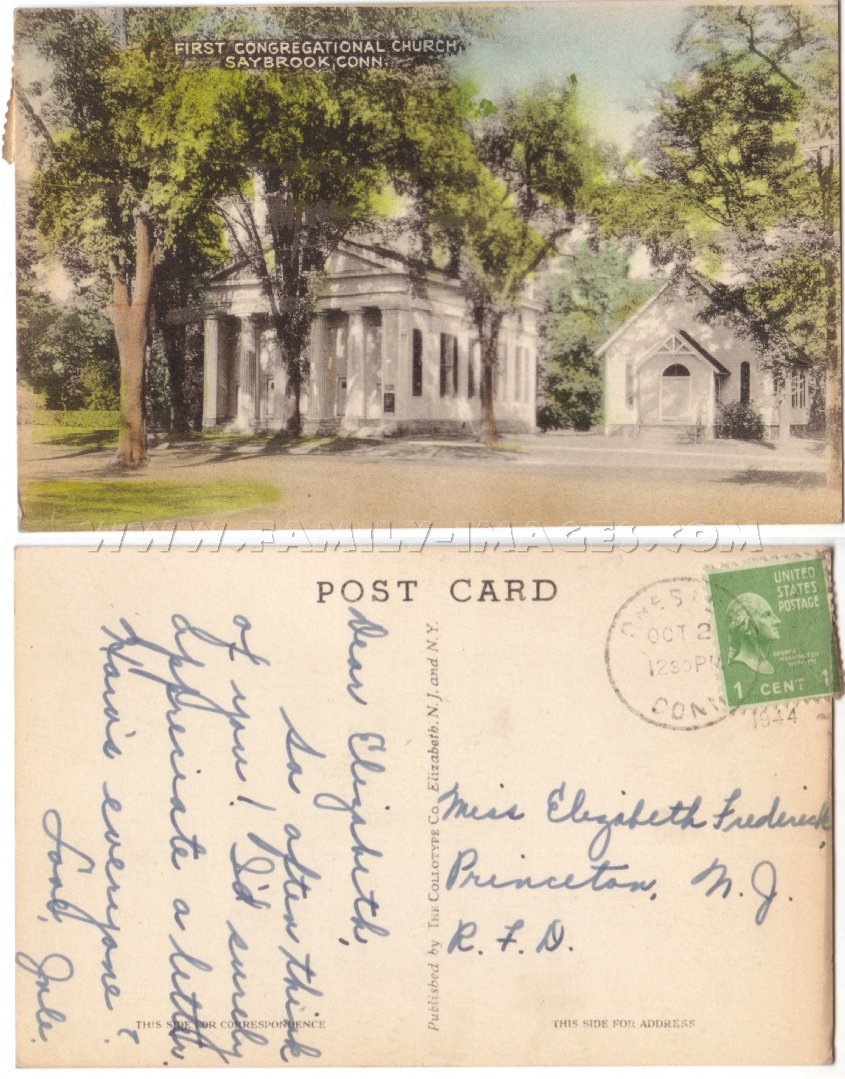 FIRST CONGREGATIONAL CHURCH,
SAYBROOK, CONN.
WWW.FAMILY-IMAGES.COM
POST CARD
Dear Elizabeth,
So often think
of you! I'd surely
appreciate a letter.
How's everyone?
Love,
THIS SIDE FOR CORRESPONDENCE
Published by THE COLLOTYPE CO. Elizabeth, N.J. and N.Y.
OCT 2
1230 PM
CONN
1944
UNITED
STATES
POSTAGE
GEORGE
WASHINGTON
1 CENT 1
Miss Elizabeth Frederick
Princeton, N.J.
R.F.D.
THIS SIDE FOR ADDRESS